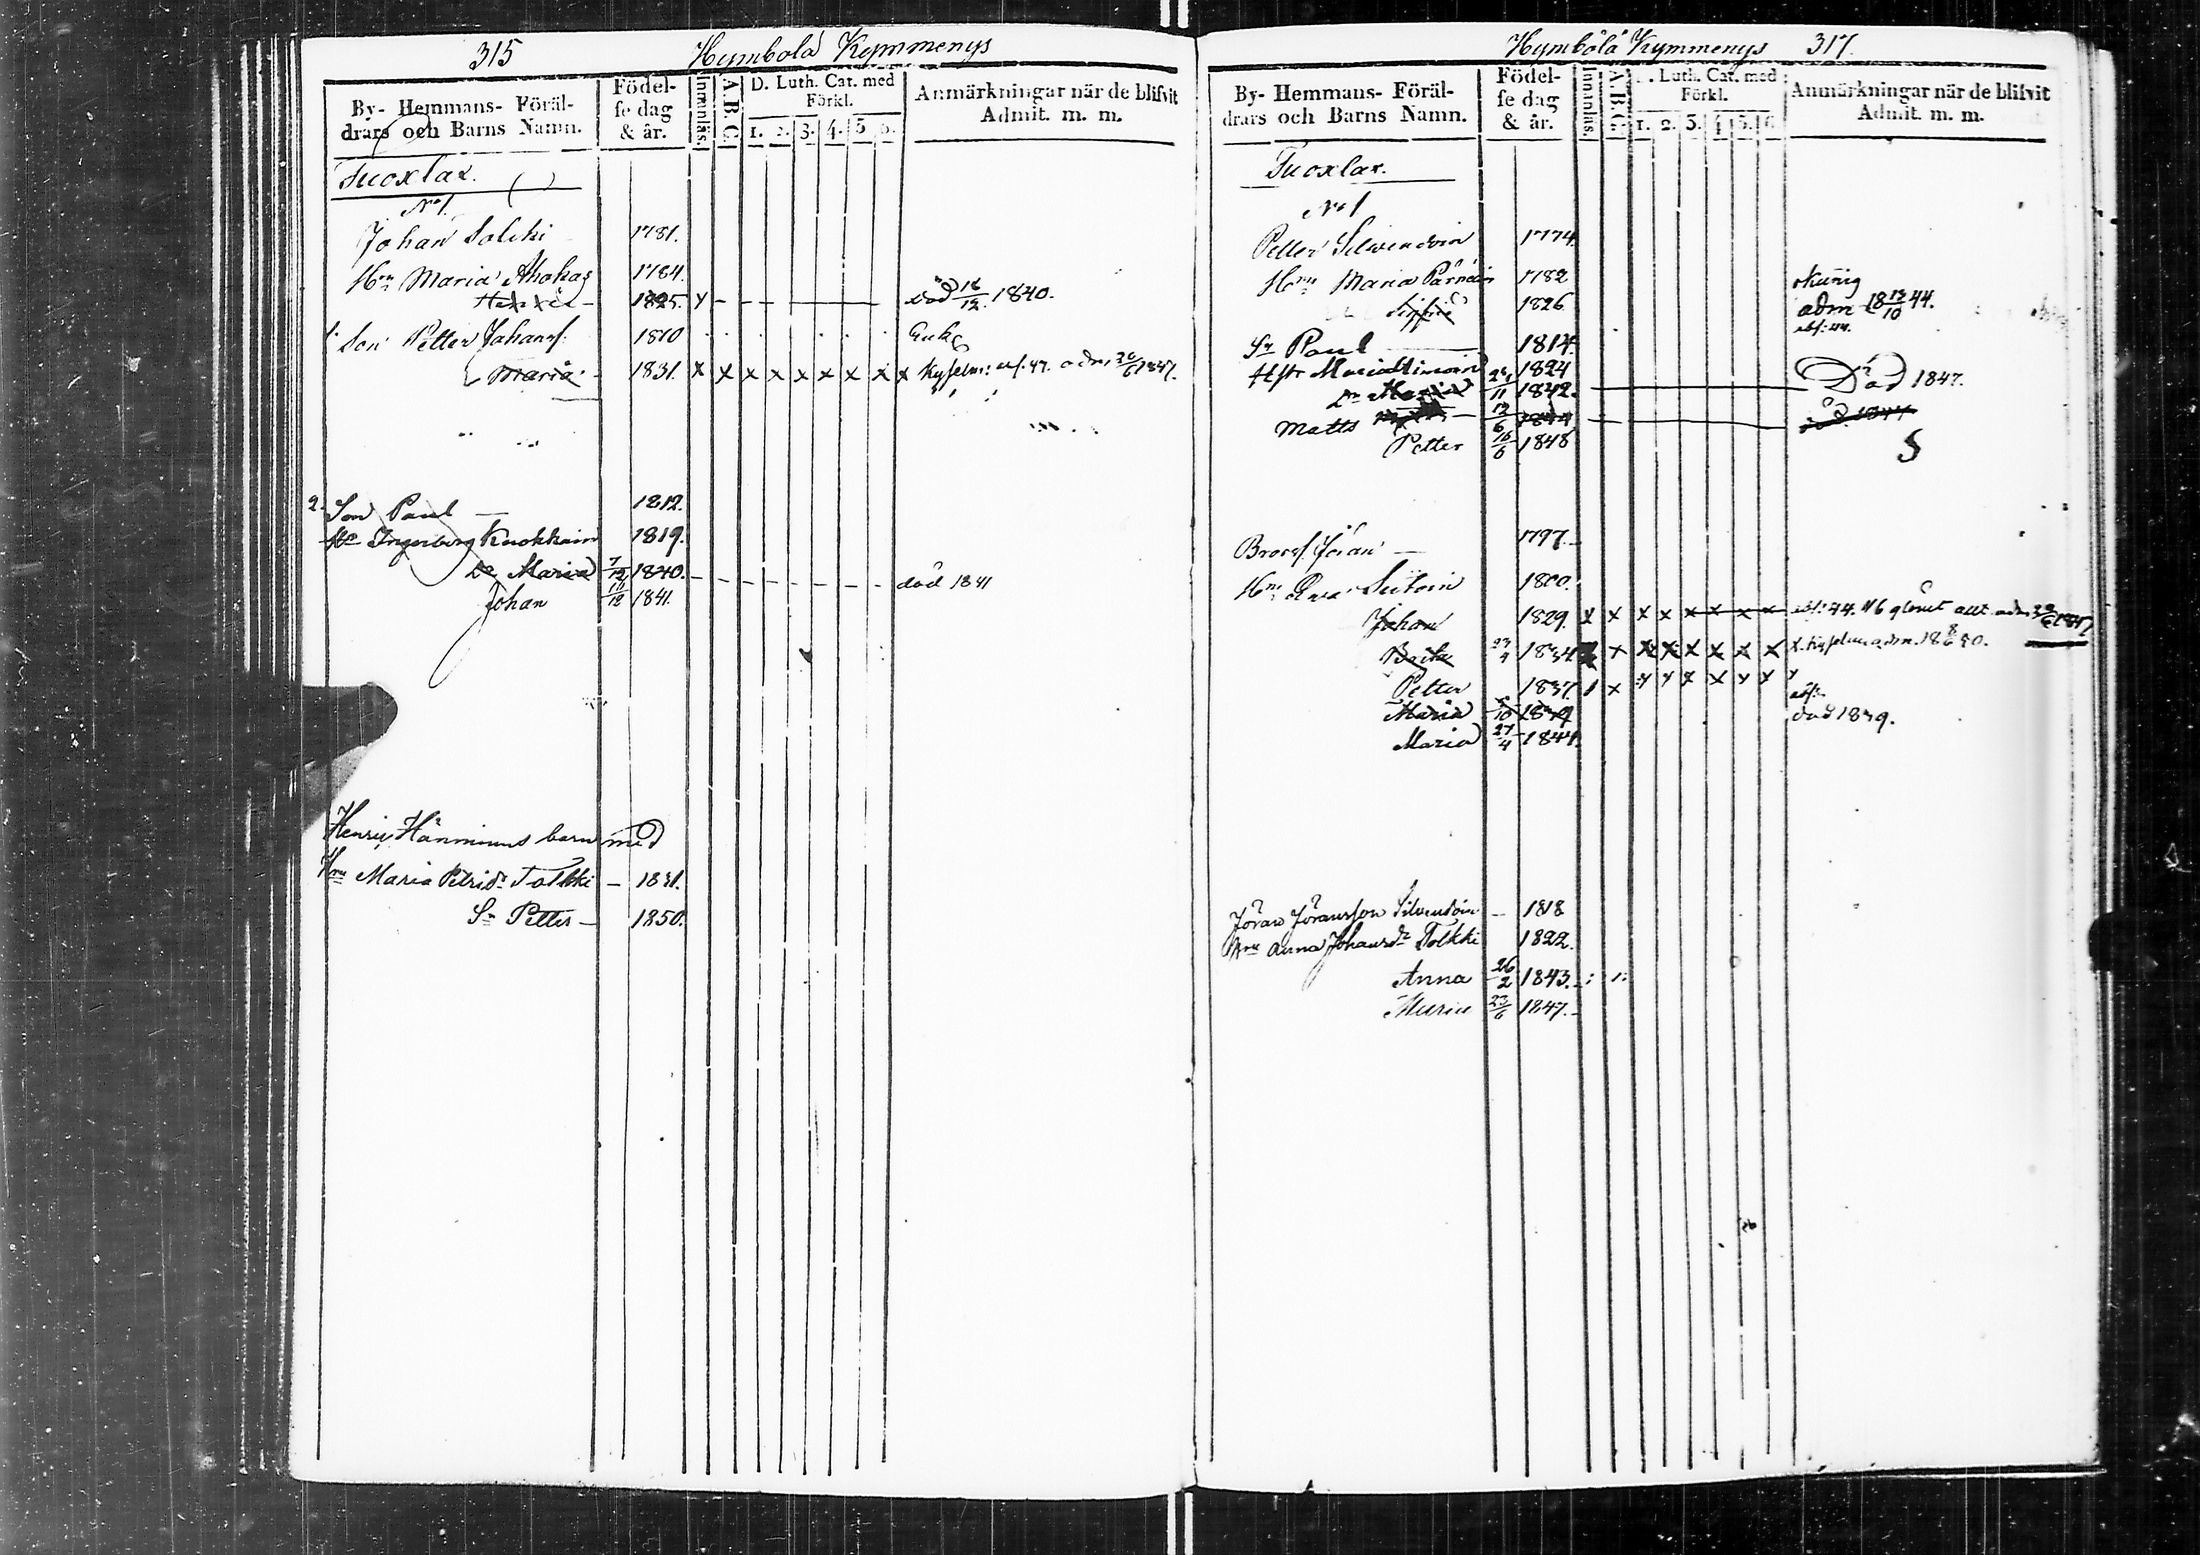 315 Hymbölä Kymmenys
By- Hemmans- Föräl-
drars och Barns Namn.
Födel-
se dag
& år.
Innanläs.
A.B.C.
D. Luth. Cat. med
Förkl.
1. 2. 3. 4. 5. 6.
Anmärkningar när de blifvit
Admit. m. m.
Tuoxlax.
No 1.
Johan Tolcki 1781.
Hru Maria Ahokas 1784.
1825. död 16/12. 1840.
1. Son Petter Johansf. 1810 Enkl
Maria 1831. x x x x x x x x x adm 20/6 1847.
2. Son Paul 1812.
Hu Ingeborg Kuokkain 1819.
Dr Maria 7/12 1840. död 1841
Johan 11/12 1841.
Henric Hänninens barn med
Hru Maria Petrid. Tolkki 1831.
Sn Petter 1850.
Hymbölä Kymmenys 317.
By- Hemmans- Föräl-
drars och Barns Namn.
Födel-
se dag
& år.
Innanläs.
A.B.C.
D. Luth. Cat. med
Förkl.
1. 2. 3. 4. 5. 6.
Anmärkningar när de blifvit
Admit. m. m.
Tuoxlax.
No 1
Petter Silvendoin 1774
Hru Maria Pärnäin 1782
1826 adm 18 13/10 44.
Sn Paul 1814.
Hstr Maria 1824
Dr Maria 11 1842. Död 1847.
Matts 12/6 1844 död 1847
Petter 16/6 1848
Brors. Jöran 1797.
Hru Eva Suitoin 1800.
Johan 1829. x x x x x x x x
Brita 1834 x x x x x x x
Petter 1837. x
Maria 1839 död 1839.
Maria 27/4 1844.
Jöran Jöransson Silvendoin 1818
Hru Anna Johansdr Tolkki 1822.
Anna 26/2 1843.
Maria 23/6 1847.